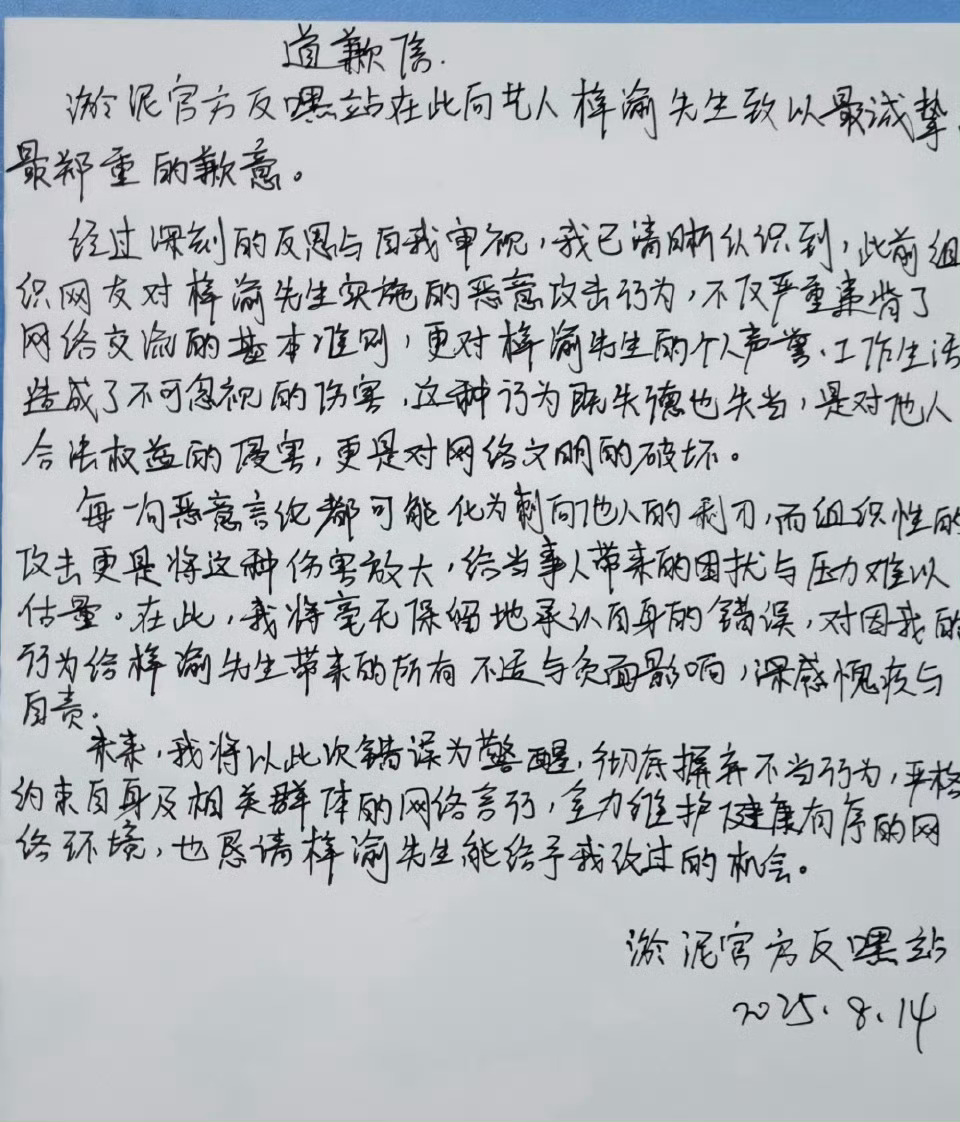 道歉信.
淤泥官方反嘿站在此向艺人梓渝先生致以最诚挚、
最郑重的歉意。
经过深刻的反思与自我审视，我已清晰认识到，此前组
织网友对梓渝先生实施的恶意攻击行为，不仅严重违背了
网络交流的基本准则，更对梓渝先生的个人声誉、工作生活
造成了不可忽视的伤害，这种行为既失德也失当，是对他人
合法权益的侵害，更是对网络文明的破坏。
每一句恶意言论都可能化为刺向他人的利刃，而组织性的
攻击更是将这种伤害放大，给当事人带来的困扰与压力难以
估量。在此，我将毫无保留地承认自身的错误，对因我的
行为给梓渝先生带来的所有不适与负面影响，深感愧疚与
自责.
未来，我将以此次错误为警醒，彻底摒弃不当行为，严格
约束自身及相关群体的网络言行，全力维护健康有序的网
络环境，也恳请梓渝先生能给予我改过的机会。
淤泥官方反嘿站
2025.8.14